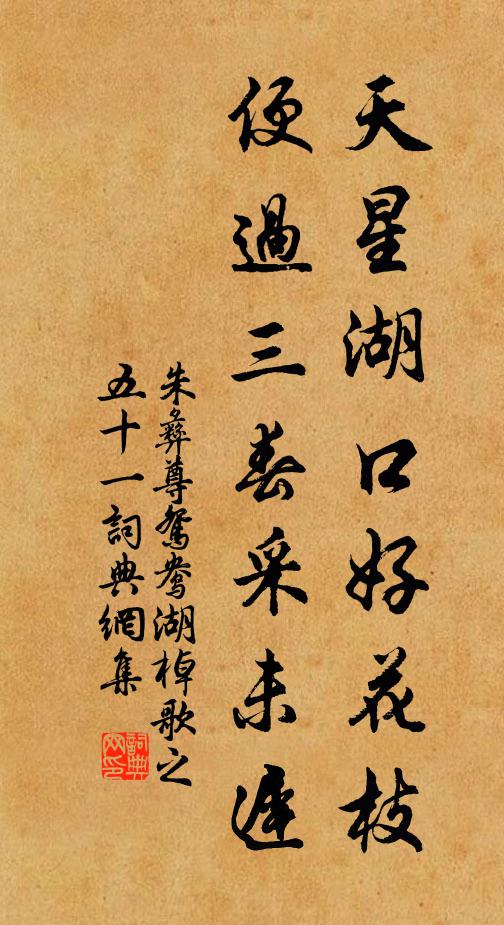 天星湖口好花枝
便過三春采未遲
朱彝尊鴛鴦湖棹歌之
五十一詞典網集
詞典网印